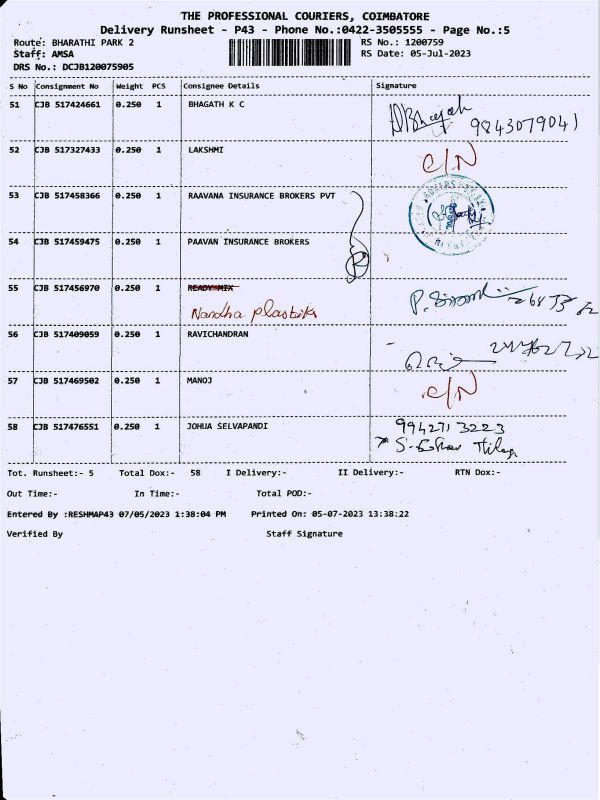 THE PROFESSIONAL COURIERS, COIMBATORE
Delivery Runsheet - P43 - Phone No.:0422-3505555 - Page No.:5
Route: BHARATHI PARK 2 RS No.: 1200759
Staff: AMSA RS Date: 05-Jul-2023
DRS No.: DCJB120075905
S No Consignment No Weight PCS Consignee Details Signature
51 CJB 517424661 0.250 1 BHAGATH K C 9843079041
52 CJB 517327433 0.250 1 LAKSHMI C/N
53 CJB 517458366 0.250 1 RAAVANA INSURANCE BROKERS PVT
54 CJB 517459475 0.250 1 PAAVAN INSURANCE BROKERS
55 CJB 517456970 0.250 1 READY MIX
Nandha plastiks
56 CJB 517409059 0.250 1 RAVICHANDRAN
57 CJB 517469502 0.250 1 MANOJ C/N
58 CJB 517476551 0.250 1 JOHUA SELVAPANDI 9942713223
Tot. Runsheet:- 5 Total Dox:- 58 I Delivery:- II Delivery:- RTN Dox:-
Out Time:- In Time:- Total POD:-
Entered By :RESHMAP43 07/05/2023 1:38:04 PM Printed On: 05-07-2023 13:38:22
Verified By Staff Signature